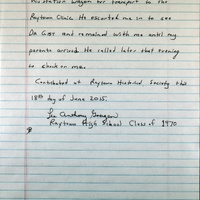 station wagon for transport to the
Raytown Clinic. He escorted me in to see
Dr Gist and remained with me until my
parents arrived. He called later that evening
to check on me.
Contributed at Raytown Historical Society this
18th day of June 2015.
Anthony
Raytown High School Class of 1970